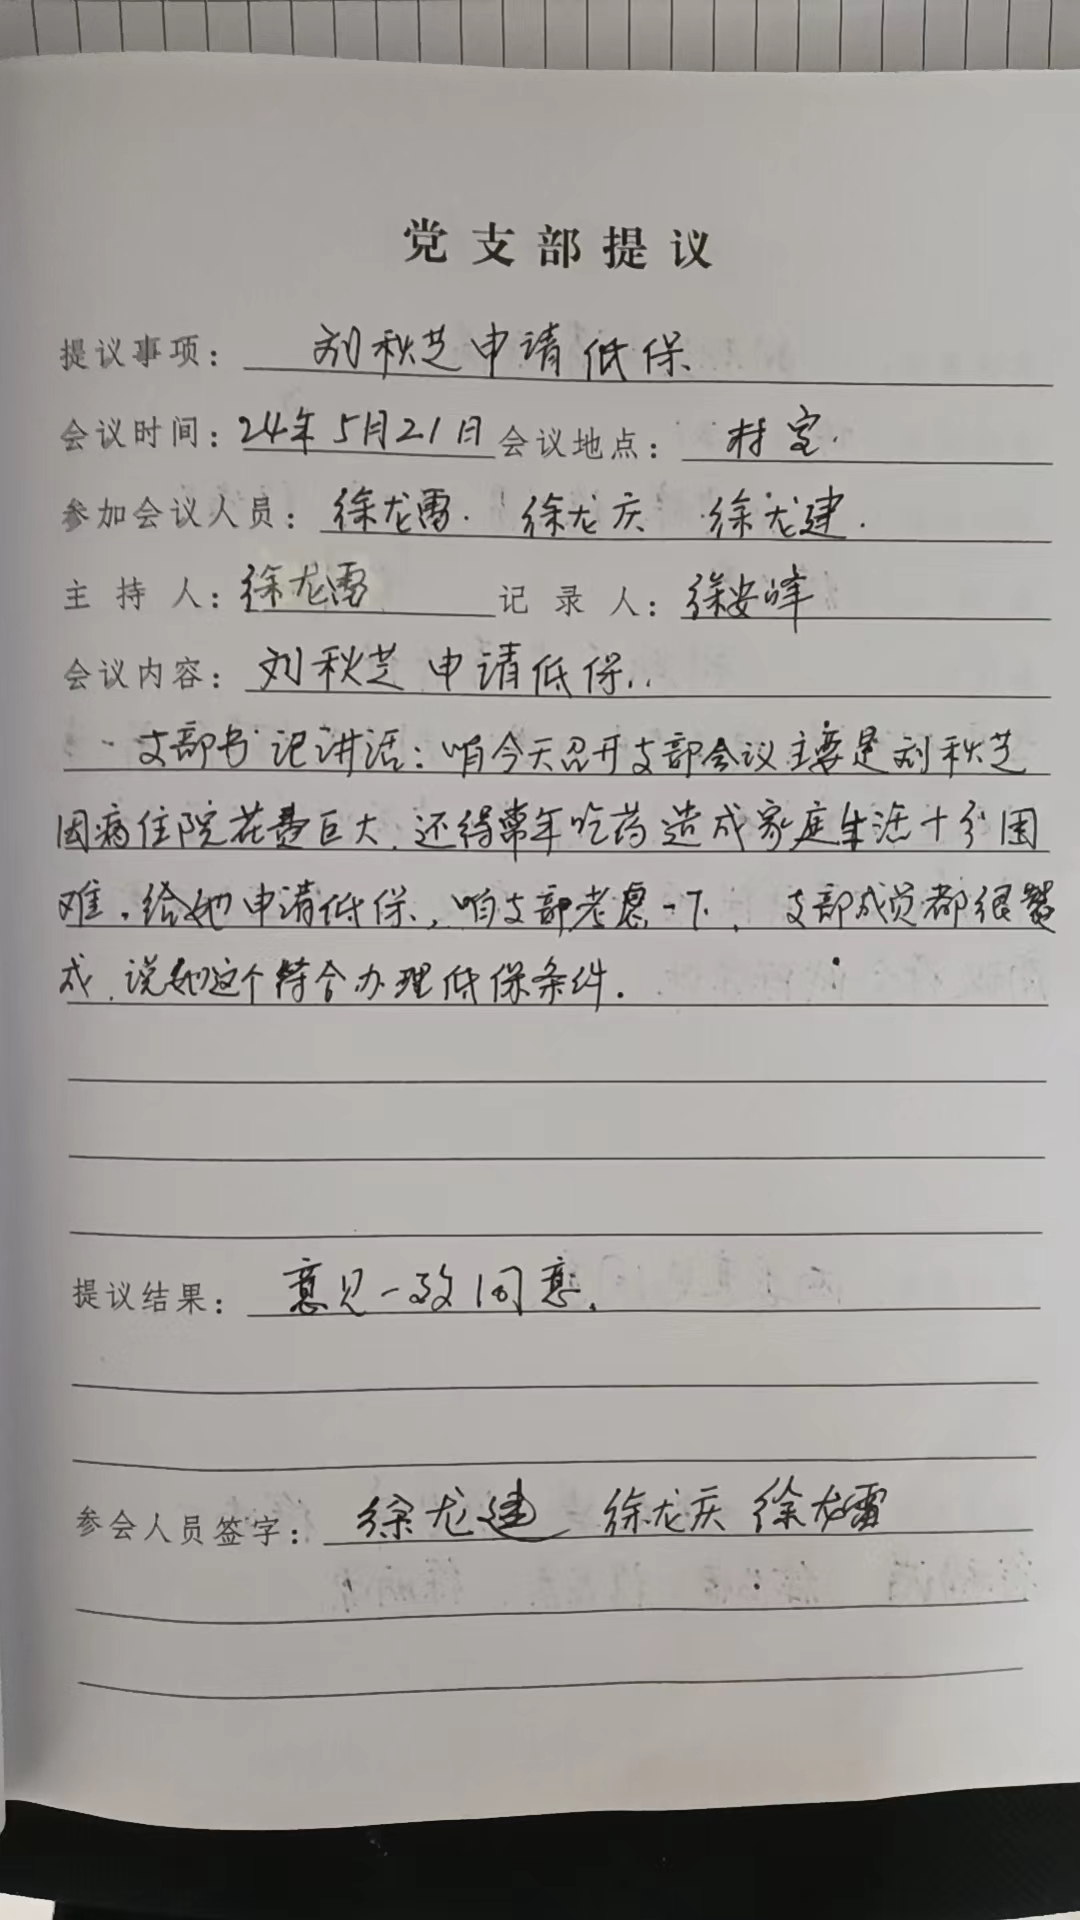 党支部提议
提议事项： 刘秋芝申请低保、
会议时间：24年5月21日 会议地点： 村室.
参加会议人员：徐龙雷. 徐龙庆 徐龙建.
主 持 人：徐龙雷 记 录 人：徐安峰
会议内容：刘秋芝申请低保..
支部书记讲话：咱今天召开支部会议主要是刘秋芝
因病住院花费巨大、还得常年吃药造成家庭生活十分困
难。给她申请低保、咱支部考虑一下、支部成员都很赞
成、说她这个符合办理低保条件.
提议结果： 意见一致同意.
参会人员签字： 徐龙建 徐龙庆 徐龙雷